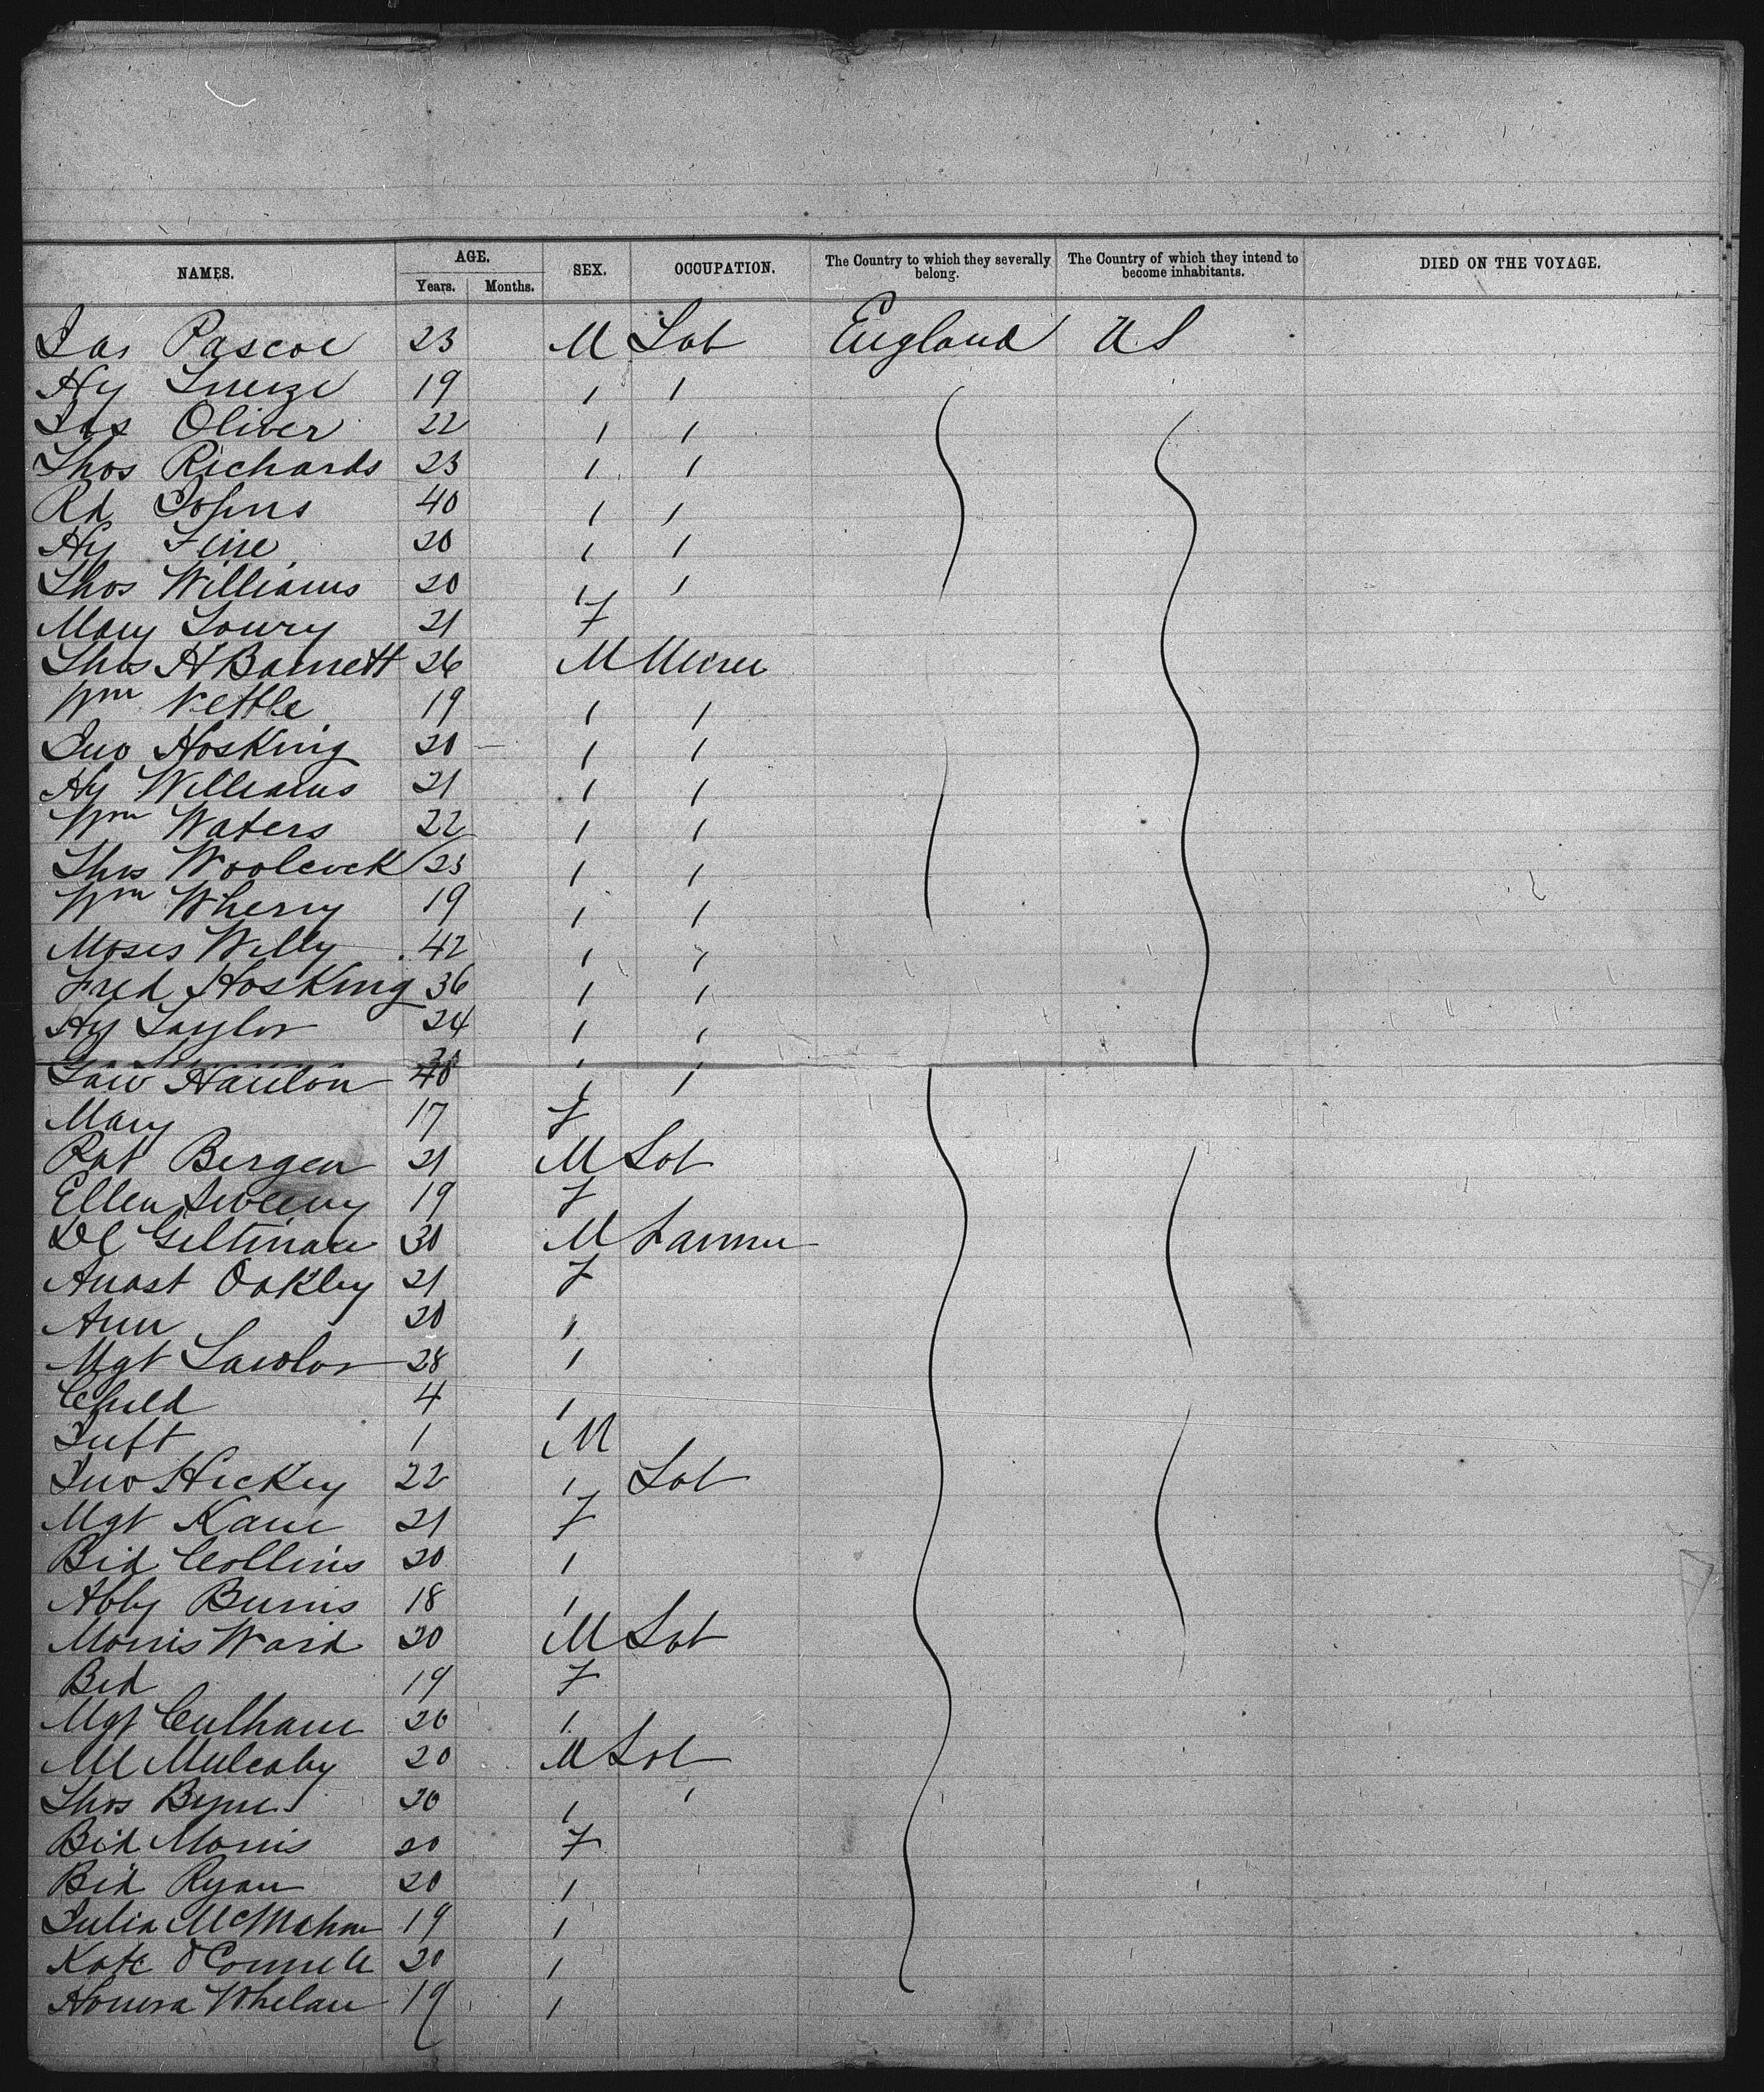 NAMES. AGE. SEX. OCCUPATION. The Country to which they severally belong. The Country of which they intend to become inhabitants. DIED ON THE VOYAGE.
Years. Months.
Jas Pascoe 23 M Lab England US
Hy 19 / /
Jas Oliver 22 / /
Thos Richards 23 / /
Rd Johns 40 / /
Hy 20 / /
Thos Williams 20 / /
Mary Lowry 21 F
Thos H Barnett 26 M Miner
Wm Nettle 19 / /
Jno Hosking 20 / /
Hy Williams 21 / /
Wm Waters 22 / /
Thos Woolcock 23 / /
Wm Wherry 19 / /
Moses Willy 42 / /
Fred Hosking 36 / /
Hy Taylor 24 / /
Law Hanlon 40 / /
Mary 17 F
Pat Bergen 21 M Lab
Ellen Sweeny 19 F
Dl Giltinane 30 M Farmer
Anast Oakley 21 F
Ann 20 /
Mgt Lawlor 28 /
Child 4 /
Inft 1 M
Jno Hickey 22 / Lab
Mgt Kane 21 F
Bid Collins 20 /
Abby Burns 18 /
Morris Ward 20 M Lab
Bid 19 F
Mgt Culhane 20 /
M Mulcahy 20 M Lab
Thos Byrne 20 / /
Bid Morris 20 F
Bid Ryan 20 /
Julia McMahon 19 /
Kate O'Connell 20 /
Honora Whelan 19 /